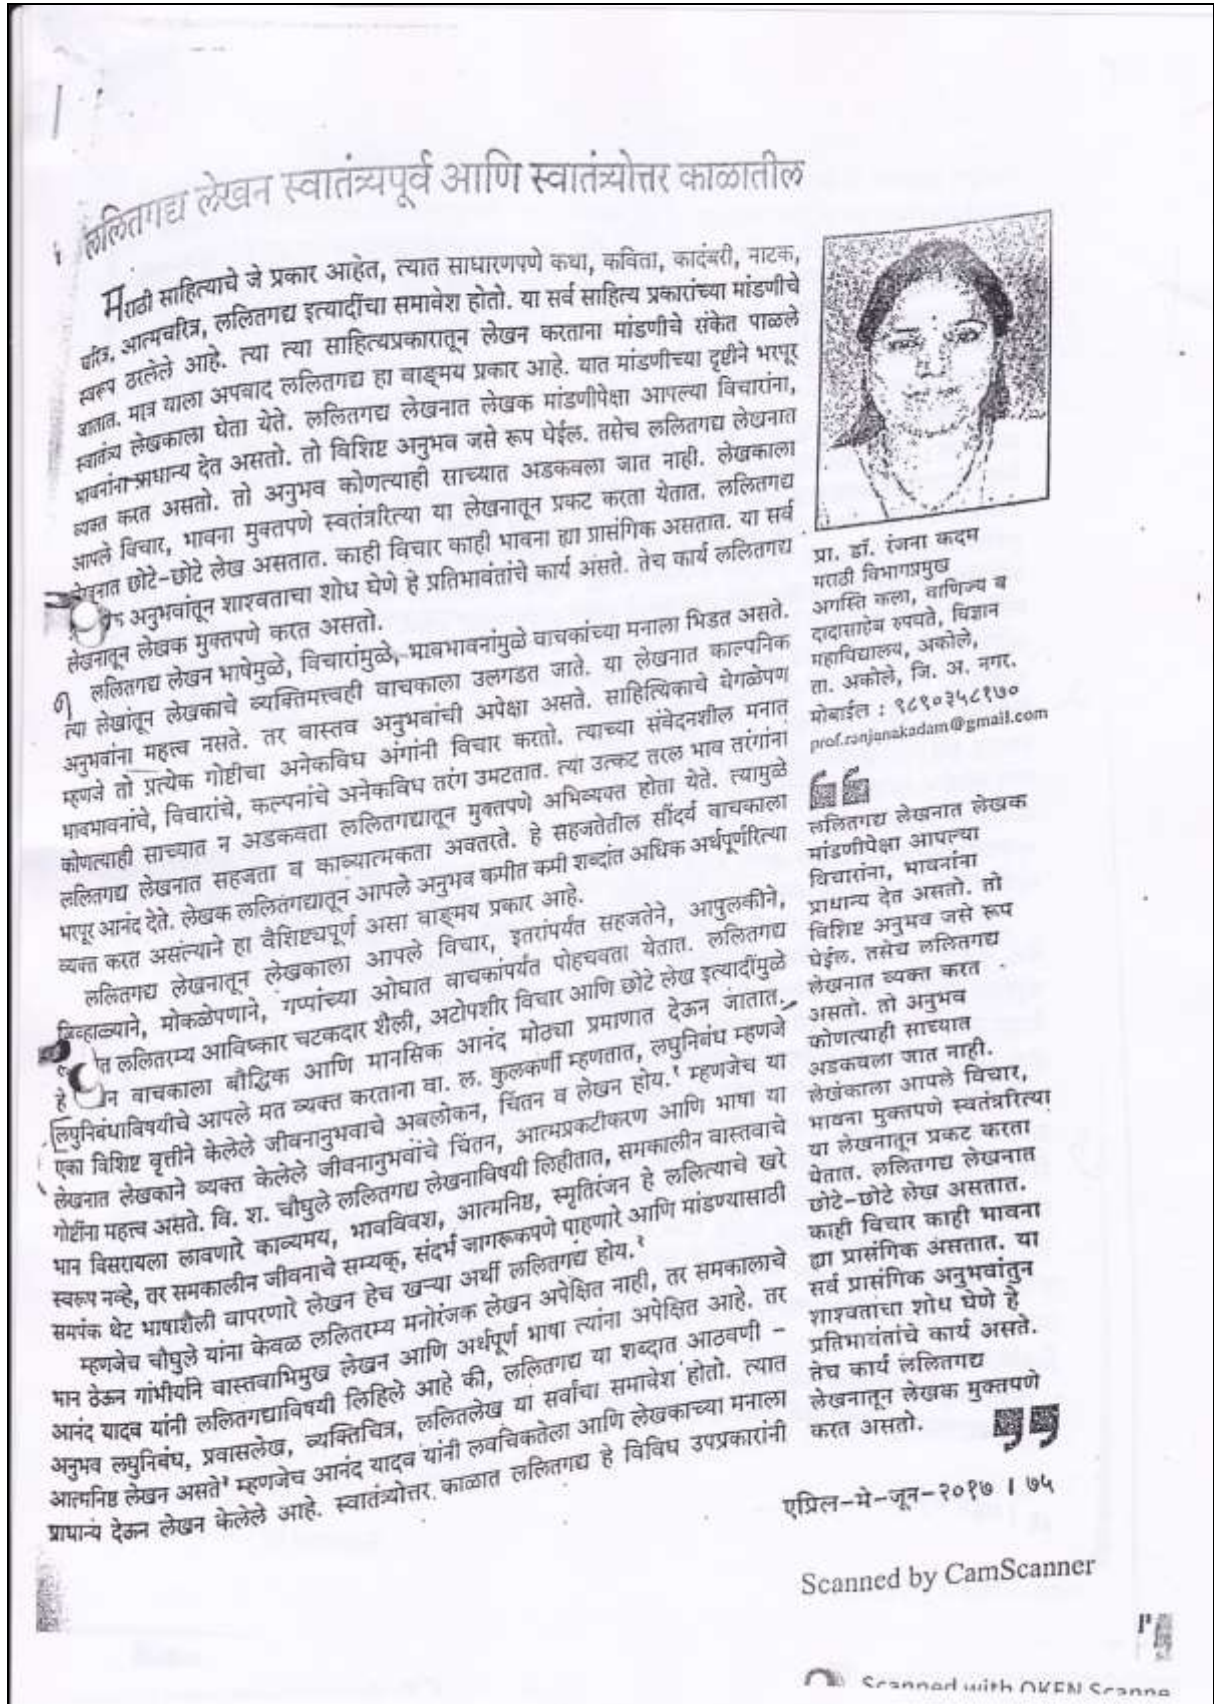 ललितगद्य लेखन स्वातंत्र्यपूर्व आणि स्वातंत्र्योत्तर काळातील
मराठी साहित्याचे जे प्रकार आहेत, त्यात साधारणपणे कथा, कविता, कादंबरी, नाटक,
चरित्र, आत्मचरित्र, ललितगद्य इत्यादींचा समावेश होतो. या सर्व साहित्य प्रकारांच्या मांडणीचे
स्वरूप ठरलेले आहे. त्या त्या साहित्यप्रकारातून लेखन करताना मांडणीचे संकेत पाळले
जातात. मात्र याला अपवाद ललितगद्य हा वाङ्मय प्रकार आहे. यात मांडणीच्या दृष्टीने भरपूर
स्वातंत्र्य लेखकाला घेता येते. ललितगद्य लेखनात लेखक मांडणीपेक्षा आपल्या विचारांना,
भावनांना प्राधान्य देत असतो. तो विशिष्ट अनुभव जसे रूप घेईल. तसेच ललितगद्य लेखनात
व्यक्त करत असतो. तो अनुभव कोणत्याही साच्यात अडकवला जात नाही. लेखकाला
आपले विचार, भावना मुक्तपणे स्वतंत्ररित्या या लेखनातून प्रकट करता येतात. ललितगद्य
लेखनात छोटे-छोटे लेख असतात. काही विचार काही भावना ह्या प्रासंगिक असतात. या सर्व
अनुभवांतून शाश्वताचा शोध घेणे हे प्रतिभावंतांचे कार्य असते. तेच कार्य ललितगद्य
लेखनातून लेखक मुक्तपणे करत असतो.
ललितगद्य लेखन भाषेमुळे, विचारांमुळे, भावभावनांमुळे वाचकांच्या मनाला भिडत असते.
त्या लेखांतून लेखकाचे व्यक्तिमत्त्वही वाचकाला उलगडत जाते. या लेखनात काल्पनिक
अनुभवांना महत्व नसते. तर वास्तव अनुभवांची अपेक्षा असते. साहित्यिकाचे वेगळेपण
म्हणजे तो प्रत्येक गोष्टीचा अनेकविध अंगांनी विचार करतो. त्याच्या संवेदनशील मनात
भावभावनांचे, विचारांचे, कल्पनांचे अनेकविध तरंग उमटतात. त्या उत्कट तरल भाव तरंगांना
कोणत्याही साच्यात न अडकवता ललितगद्यातून मुक्तपणे अभिव्यक्त होता येते. त्यामुळे
ललितगद्य लेखनात सहजता व काव्यात्मकता अवतरते. हे सहजतेतील सौंदर्य वाचकाला
भरपूर आनंद देते. लेखक ललितगद्यातून आपले अनुभव कमीत कमी शब्दांत अधिक अर्थपूर्णरित्या
व्यक्त करत असल्याने हा वैशिष्ट्यपूर्ण असा वाङ्मय प्रकार आहे.
ललितगद्य लेखनातून लेखकाला आपले विचार, इतरांपर्यंत सहजतेने, आपुलकीने,
जिव्हाळ्याने, मोकळेपणाने, गप्पांच्या ओघात वाचकांपर्यंत पोहचवता येतात. ललितगद्य
ललितरम्य आविष्कार चटकदार शैली, अटोपशीर विचार आणि छोटे लेख इत्यादींमुळे
हे वाचकाला बौद्धिक आणि मानसिक आनंद मोठ्या प्रमाणात देऊन जातात.
लघुनिबंधाविषयीचे आपले मत व्यक्त करताना वा. ल. कुलकर्णी म्हणतात, लघुनिबंध म्हणजे
एका विशिष्ट वृत्तीने केलेले जीवनानुभवाचे अवलोकन, चिंतन व लेखन होय.१ म्हणजेच या
लेखनात लेखकाने व्यक्त केलेले जीवनानुभवांचे चिंतन, आत्मप्रकटीकरण आणि भाषा या
गोष्टींना महत्त्व असते. वि. श. चौघुले ललितगद्य लेखनाविषयी लिहीतात, समकालीन वास्तवाचे
भान विसरायला लावणारे काव्यमय, भावविवश, आत्मनिष्ठ, स्मृतिरंजन हे ललित्याचे खरे
स्वरूप नव्हे, तर समकालीन जीवनाचे सम्यक्, संदर्भ जागरूकपणे पाहणारे आणि मांडण्यासाठी
समर्पक थेट भाषाशैली वापरणारे लेखन हेच खऱ्या अर्थी ललितगद्य होय.२
म्हणजेच चौघुले यांना केवळ ललितरम्य मनोरंजक लेखन अपेक्षित नाही, तर समकालाचे
भान ठेऊन गांभीर्याने वास्तवाभिमुख लेखन आणि अर्थपूर्ण भाषा त्यांना अपेक्षित आहे. तर
आनंद यादव यांनी ललितगद्याविषयी लिहिले आहे की, ललितगद्य या शब्दात आठवणी -
अनुभव लघुनिबंध, प्रवासलेख, व्यक्तिचित्र, ललितलेख या सर्वांचा समावेश होतो. त्यात
आत्मनिष्ठ लेखन असते३ म्हणजेच आनंद यादव यांनी लवचिकतेला आणि लेखकाच्या मनाला
प्राधान्य देऊन लेखन केलेले आहे. स्वातंत्र्योत्तर काळात ललितगद्य हे विविध उपप्रकारांनी
प्रा. डॉ. रंजना कदम
मराठी विभागप्रमुख
अगस्ति कला, वाणिज्य व
दादासाहेब रुपवते, विज्ञान
महाविद्यालय, अकोले,
ता. अकोले, जि. अ. नगर.
मोबाईल : ९८९०३५८१७०
prof.ranjanakadam@gmail.com
ललितगद्य लेखनात लेखक
मांडणीपेक्षा आपल्या
विचारांना, भावनांना
प्राधान्य देत असतो. तो
विशिष्ट अनुभव जसे रूप
घेईल. तसेच ललितगद्य
लेखनात व्यक्त करत
असतो. तो अनुभव
कोणत्याही साच्यात
अडकवला जात नाही.
लेखकाला आपले विचार,
भावना मुक्तपणे स्वतंत्ररित्या
या लेखनातून प्रकट करता
येतात. ललितगद्य लेखनात
छोटे-छोटे लेख असतात.
काही विचार काही भावना
ह्या प्रासंगिक असतात. या
सर्व प्रासंगिक अनुभवांतुन
शाश्वताचा शोध घेणे हे
प्रतिभावंतांचे कार्य असते.
तेच कार्य ललितगद्य
लेखनातून लेखक मुक्तपणे
करत असतो.
एप्रिल-मे-जून-२०१७ । ७५
Scanned by CamScanner
Scanned with OKEN Scanne